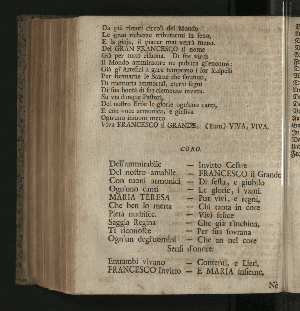 Da più rimoti circoli del Mondo
Le gran ricchezze tributarmi in seno,
E la gioja, il piacer mai verrà meno.
Del GRAN FRANCESCO il nome
Già per noto risuona. Di sue virtù
Il Mondo ammiratore ne gli
Già gl'Artefici a gara temprato i lor scalpelli
Per formarne le Statue che saranno,
Di memoria immortal, eterni segni
Di sua bontà di sua clemenza invitta.
Su via dunque Pastori,
Del nostro Eroe le glorie ogn'uno canti,
E con voce armonica, e giuliva
Ogn'uno innumi meco
Viva FRANCESCO il GRANDE. (Tutti.) VIVA, VIVA.
CORO.
Dell'ammirabile — Invitto Cesare
Del nostro amabile — FRANCESCO il Grande
Con tuoni armonici — Di festa, e giubilo
Ogn'uno canti — Le glorie, i vanti.
MARIA TERESA — Pur vivi, e regni,
Che ben lo merta — Chi tanta in core
Pietà nudrisce. — Vivi felice
Saggia Regina — Che già t'inchina,
Ti riconosce — Per sua sovrana
Ogn'un degl'uomini — Che an nel core
Sensi d'onore.
Entrambi vivano — Contenti, e Lieti,
FRANCESCO Invitto — E MARIA insieme,
Nè